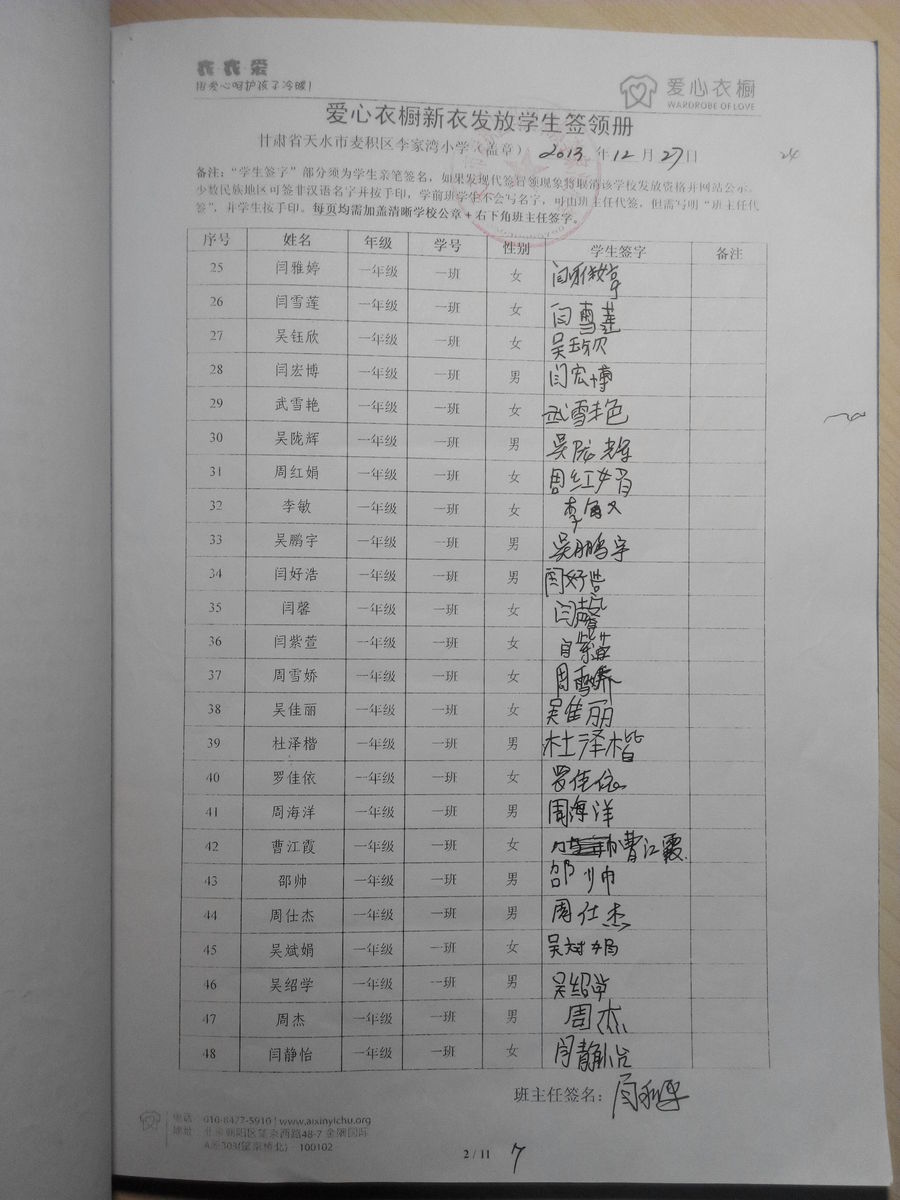 衣·衣·爱
用爱心呵护孩子冷暖!
爱心衣橱
WARDROBE OF LOVE
爱心衣橱新衣发放学生签领册
甘肃省天水市麦积区李家湾小学（盖章） 2013 年 12 月 27 日
24
备注：“学生签字”部分须为学生亲笔签名，如果发现代签冒领现象将取消该学校发放资格并网站公示。
少数民族地区可签非汉语名字并按手印，学前班学生不会写名字，可由班主任代签，但需写明“班主任代
签”，并学生按手印。每页均需加盖清晰学校公章+右下角班主任签字。
序号 姓名 年级 学号 性别 学生签字 备注
25 闫雅婷 一年级 一班 女 闫雅婷
26 闫雪莲 一年级 一班 女 闫雪莲
27 吴钰欣 一年级 一班 女 吴钰欣
28 闫宏博 一年级 一班 男 闫宏博
29 武雪艳 一年级 一班 女 武雪艳
30 吴陇辉 一年级 一班 男 吴陇辉
31 周红娟 一年级 一班 女 周红娟
32 李敏 一年级 一班 女 李敏
33 吴鹏宇 一年级 一班 男 吴鹏宇
34 闫好浩 一年级 一班 男 闫好浩
35 闫馨 一年级 一班 女 闫馨
36 闫紫萱 一年级 一班 女 闫紫萱
37 周雪娇 一年级 一班 女 周雪娇
38 吴佳丽 一年级 一班 女 吴佳丽
39 杜泽楷 一年级 一班 男 杜泽楷
40 罗佳依 一年级 一班 女 罗佳依
41 周海洋 一年级 一班 男 周海洋
42 曹江霞 一年级 一班 女 曹江霞
43 邵帅 一年级 一班 男 邵帅
44 周仕杰 一年级 一班 男 周仕杰
45 吴斌娟 一年级 一班 女 吴斌娟
46 吴绍学 一年级 一班 男 吴绍学
47 周杰 一年级 一班 男 周杰
48 闫静怡 一年级 一班 女 闫静怡
班主任签名：
电话 010-8477-5910 | www.aixinyichu.org
地址 北京朝阳区望京西路48-7 金隅国际
A座303(望京桥北) 100102
2 / 11 7